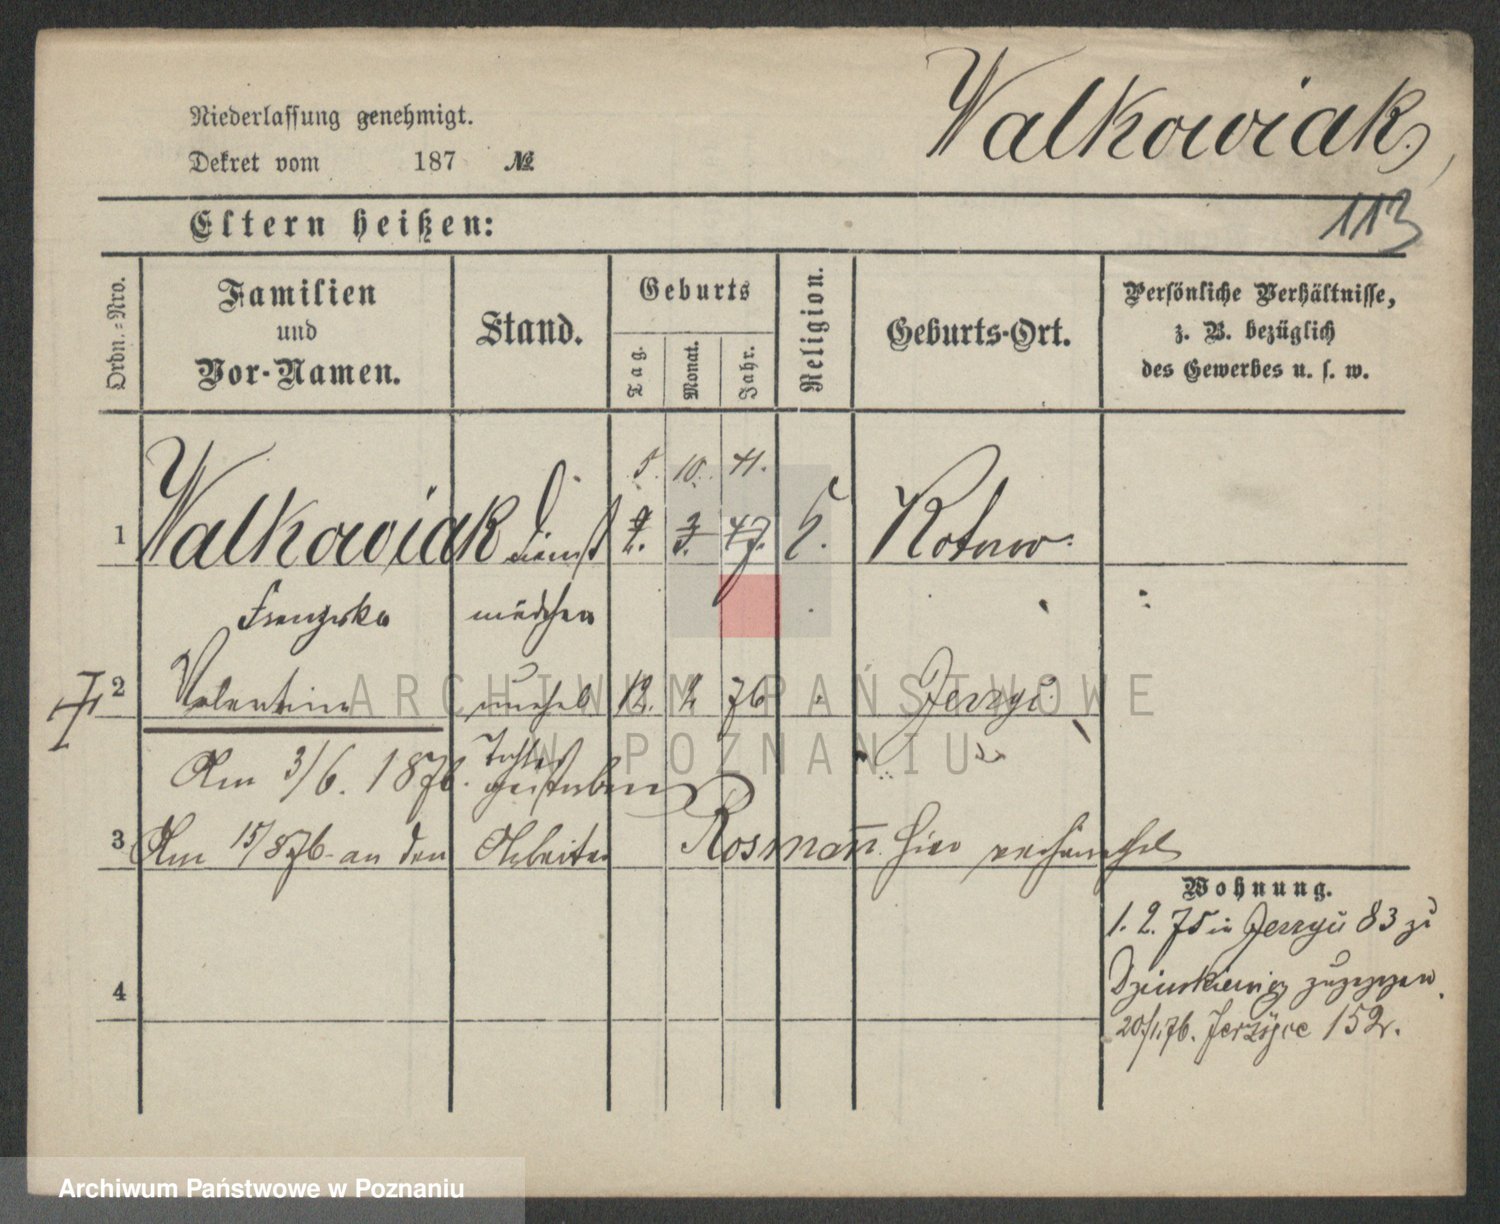 Niederlassung genehmigt.
Walkowiak
Dekret vom 187 №
Eltern heißen:
113
Ordn.=Nro.
Familien
und
Vor-Namen.
Stand.
Geburts
Tag.
Monat.
Jahr.
Religion.
Geburts-Ort.
Persönliche Verhältnisse,
z. B. bezüglich
des Gewerbes u. s. w.
5. 10. 41.
1 Walkowiak Dienst 2. 3. 47. k. Kotowo
Franziska mädchen
2 Valentine unehel. 12. 2 76 Jerzyce
Tochter
Am 3/6. 1876. gestorben
3 Am 15/876 an den Arbeiter Rosmann hier verheirathet
Wohnung.
1. 2. 75 in Jerzyce 83 zu
zugezogen
4
20/1.76. Jerzyce 152.
ARCHIWUM PAŃSTWOWE
W POZNANIU
Archiwum Państwowe w Poznaniu